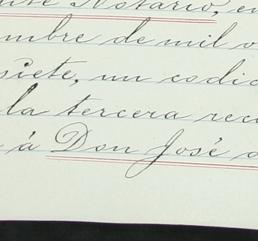 Notario, en
mbre de mil o
siete, un codic
la tercera rec
á Don José